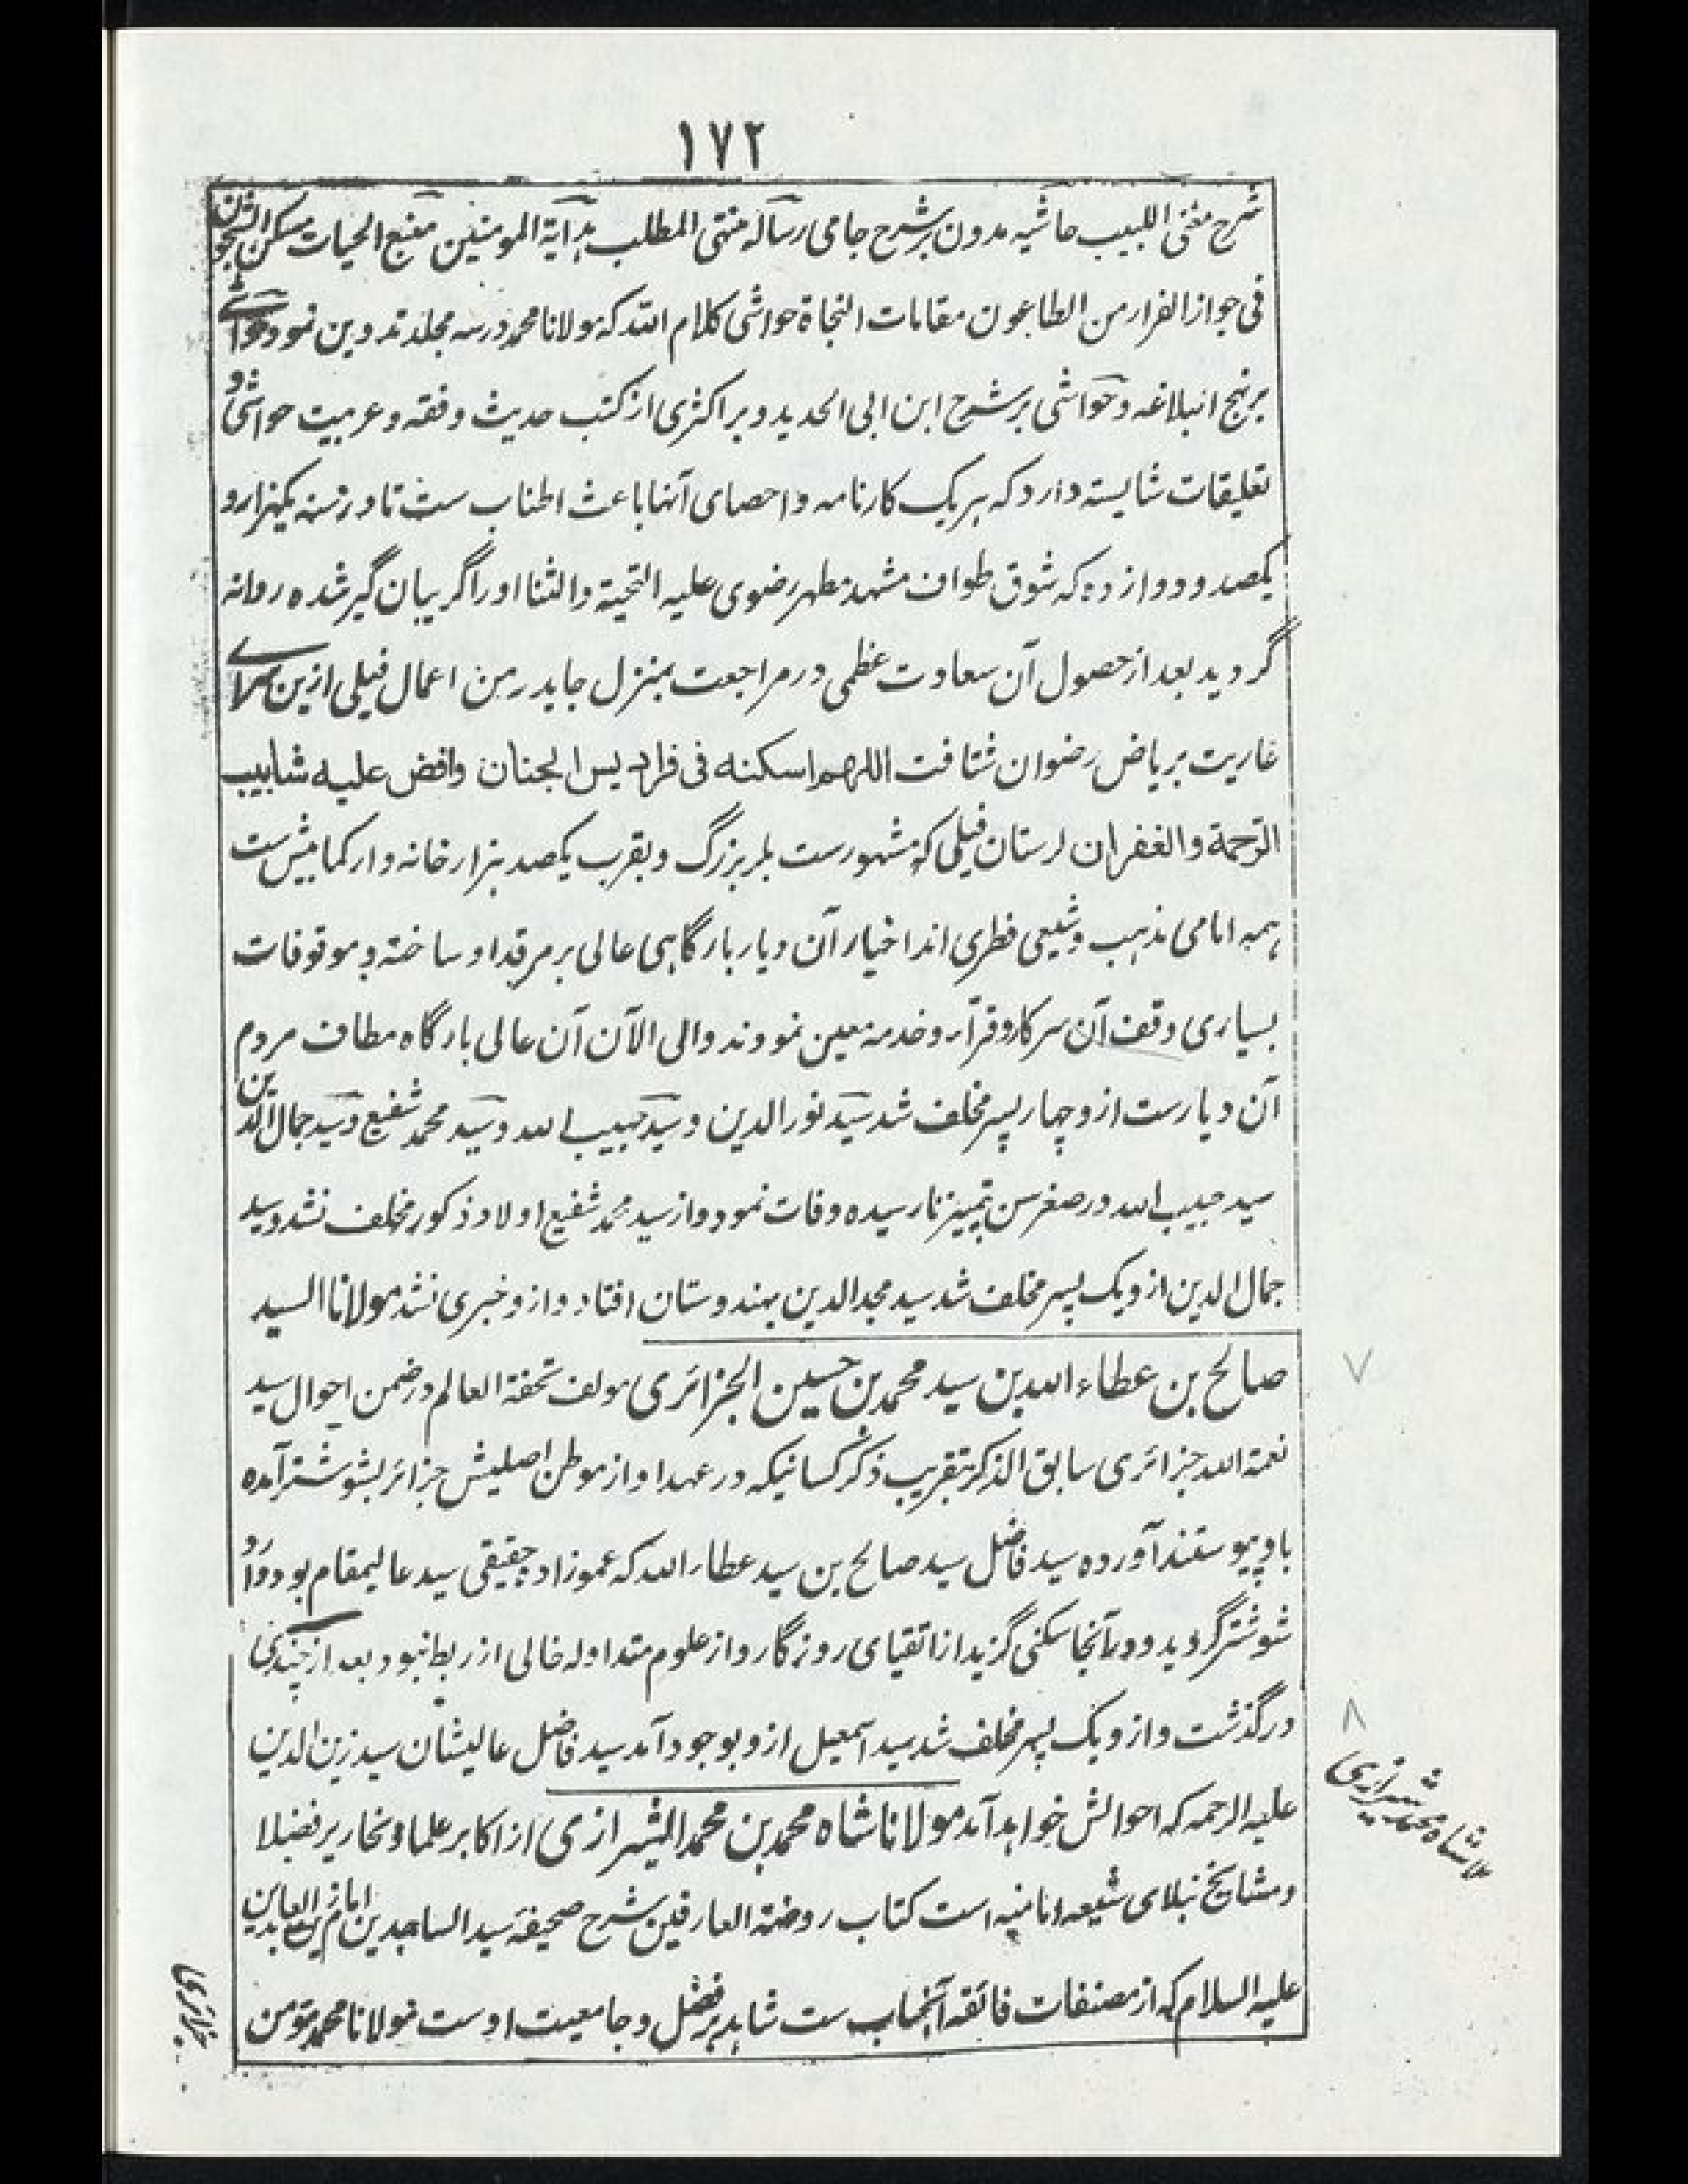 ١٧٢
شرح مغنی اللبیب حاشیه مدون برشرح جامی رساله منتهی المطلب هدایة المومنین منبع الحیات مسکن الشجون
فی جواز الفرار من الطاعون مقامات النجاة حواشی کلام الله که مولانا محمد درسه مجلد تدوین نمود حواشی
برنهج البلاغه و حواشی برشرح ابن ابی الحدید و بر اکثری از کتب حدیث و فقه و عربیت حواشی و
تعلیقات شایسته دارد که هریک کارنامه و احصای آنها باعث اطناب ست تا در سنه یکهزار و
یکصد و دوازده که شوق طواف مشهد مطهر رضوی علیه التحیة والثنا او را گریبان گیر شده روانه
گردید بعد از حصول آن سعادت عظمی در مراجعت بمنزل جایدر من اعمال فیلی ازین سرای
عاریت بریاض رضوان شتافت اللهم اسکنه فی فرادیس الجنان وافض علیه شابیب
الرحمة والغفران لرستان فیلی که مشهورست بلر بزرگ و بقرب یکصد هزار خانه وار کمابیش ست
همه امامی مذهب و شیعی فطری اند اخیار آن دیار بارگاهی عالی بر مرقد او ساخته و موقوفات
بسیاری وقف آن سرکار و قرآء و خدمه معین نمودند والی الآن آن عالی بارگاه مطاف مردم
آن دیارست ازو چهار پسر مخلف شد سید نورالدین و سید حبیب الله و سید محمد شفیع و سید جمال الدین
سید حبیب الله در صغر سن بتمییز نارسیده وفات نمود و از سید محمد شفیع اولاد ذکور مخلف نشد و سید
جمال الدین ازو یک پسر مخلف شد سید مجد الدین بهندوستان افتاد و ازو خبری نشد مولانا السید
صالح بن عطاء الله بن سید محمد بن حسین الجزائری مولف تحفة العالم در ضمن احوال سید
نعمة الله جزائری سابق الذکر بتقریب ذکر کسانیکه در عهد او از موطن اصلیش جزائر بشوشتر آمده
باو پیوستند آورده سید فاضل سید صالح بن سید عطاء الله که عموزاد حقیقی سید عالیمقام بود وارد
شوشتر گردید و در آنجا سکنی گزید از اتقیای روزگار و از علوم متداوله خالی از ربط نبود بعد از چندی
درگذشت و ازو یک پسر مخلف شد سید اسمعیل ازو بوجود آمد سید فاضل عالیشان سید زین الدین
علیه الرحمه که احوالش خواهد آمد مولانا شاه محمد بن محمد الشیرازی از اکابر علما و نحاریر فضلا
و مشایخ نبلای شیعه امامیه است کتاب روضة العارفین شرح صحیفه سید الساجدین امام زین العابدین
علیه السلام که از مصنفات فائقه آنجناب ست شاهد بر فضل و جامعیت اوست مولانا محمد مومن
ملا شاه محمد شیرازی
جزائری